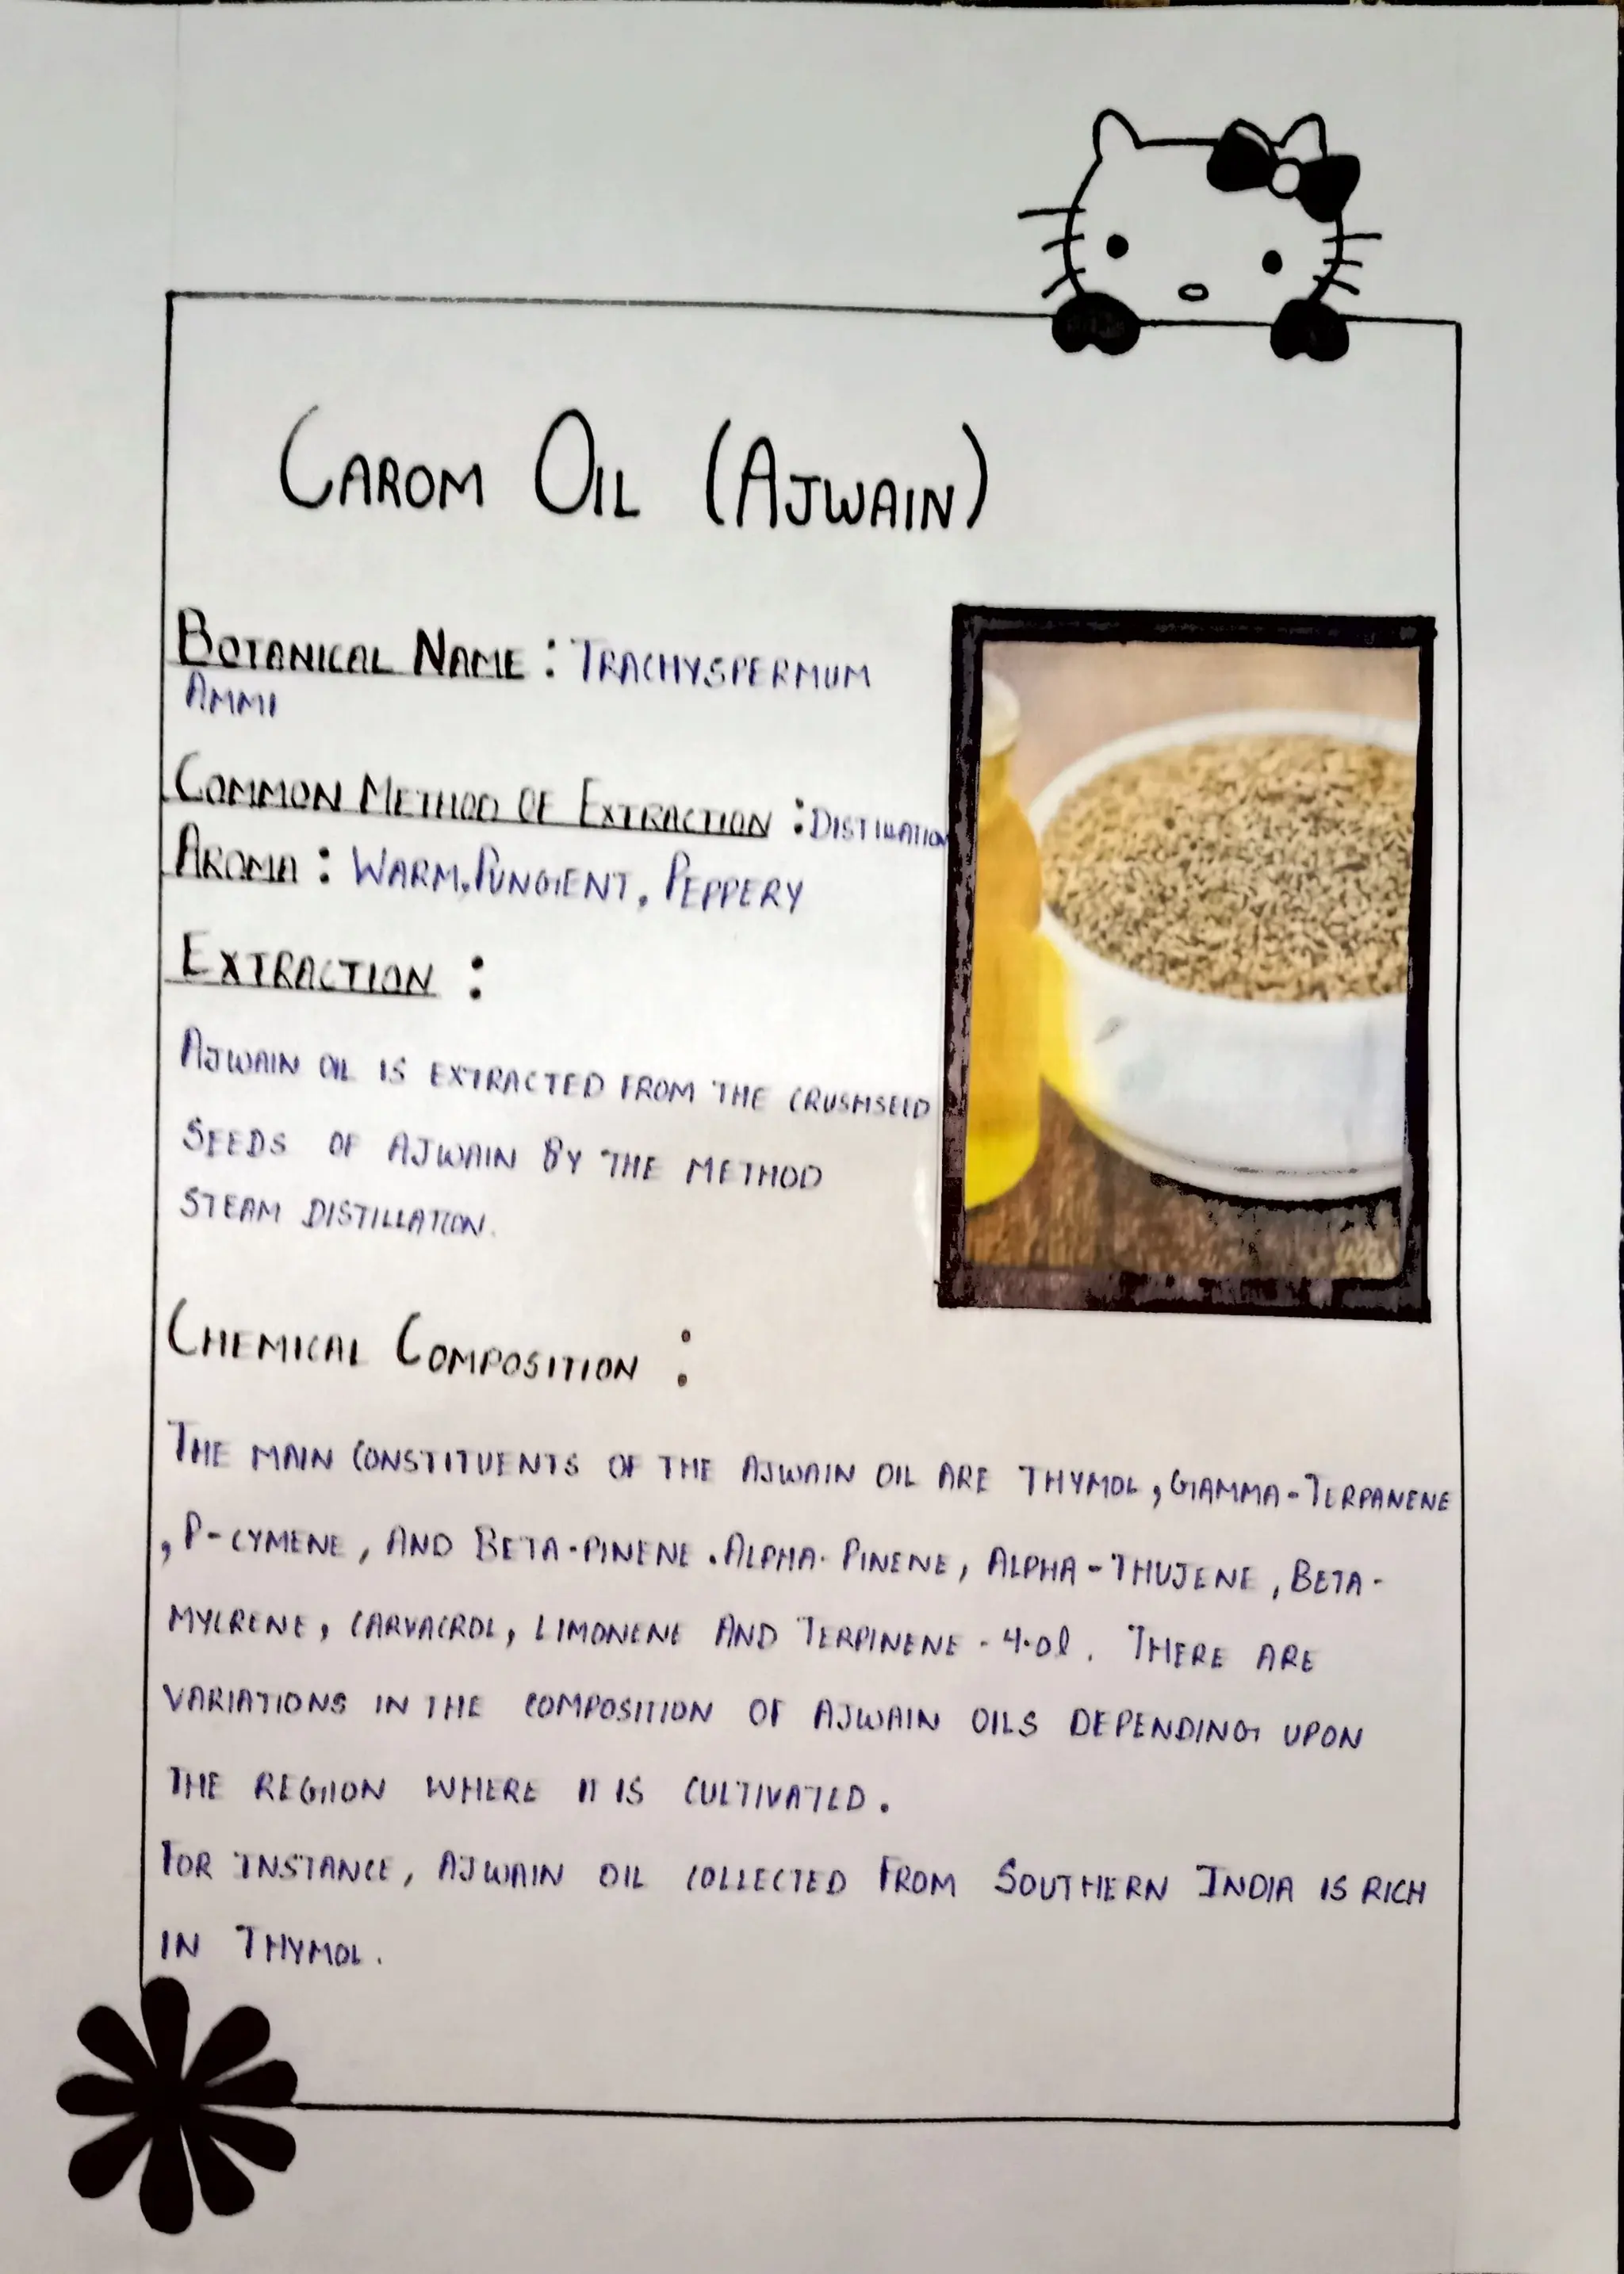 CAROM OIL (AJWAIN)
BOTANICAL NAME : TRACHYSPERMUM
AMMI
COMMON METHOD OF EXTRACTION : DISTILLATION
AROMA : WARM, PUNGENT, PEPPERY
EXTRACTION :
AJWAIN OIL IS EXTRACTED FROM THE CRUSHSEED
SEEDS OF AJWAIN BY THE METHOD
STEAM DISTILLATION.
CHEMICAL COMPOSITION :
THE MAIN CONSTITUENTS OF THE AJWAIN OIL ARE THYMOL, GAMMA-TERPANENE
, P-CYMENE, AND BETA-PINENE. ALPHA-PINENE, ALPHA-THUJENE, BETA-
MYCRENE, CARVACROL, LIMONENE AND TERPINENE-4-ol. THERE ARE
VARIATIONS IN THE COMPOSITION OF AJWAIN OILS DEPENDING UPON
THE REGION WHERE IT IS CULTIVATED.
FOR INSTANCE, AJWAIN OIL COLLECTED FROM SOUTHERN INDIA IS RICH
IN THYMOL.